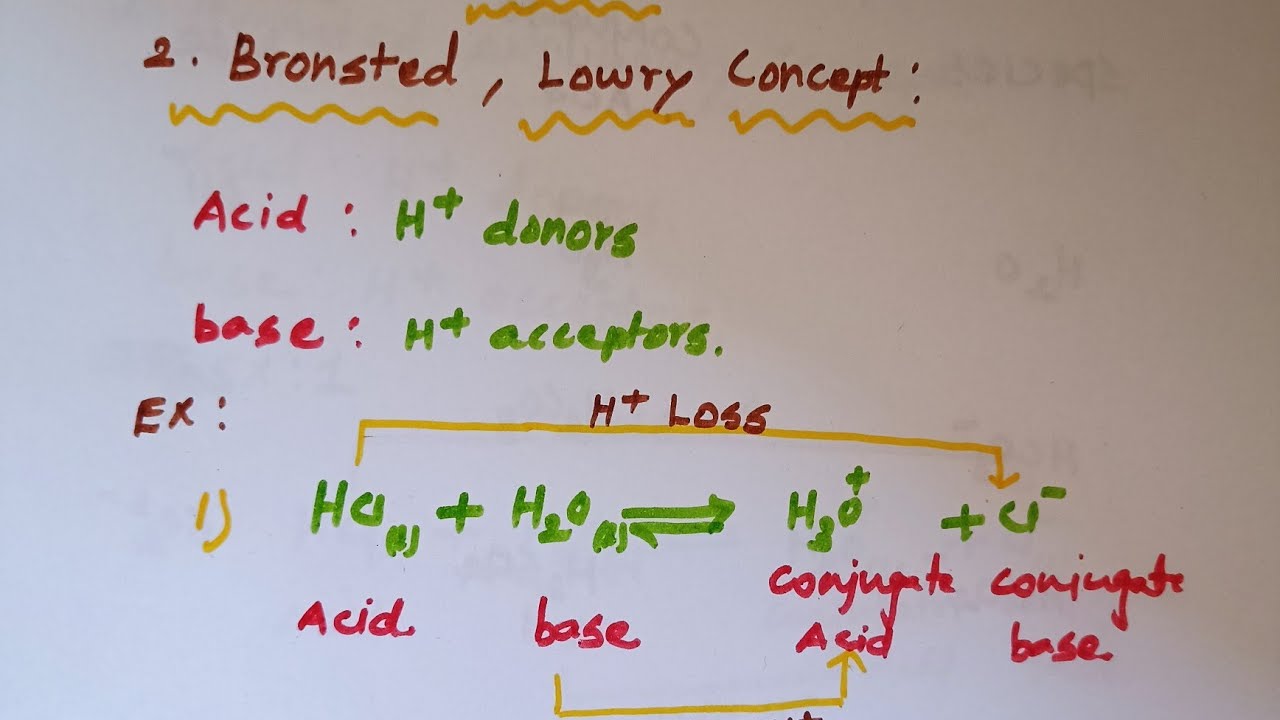 2. Bronsted, Lowry Concept:
Acid: H⁺ donors
base: H⁺ acceptors.
Ex:
H⁺ Loss
1) HCl + H₂O ⇌ H₃O⁺ + Cl⁻
Acid base conjugate Acid conjugate base